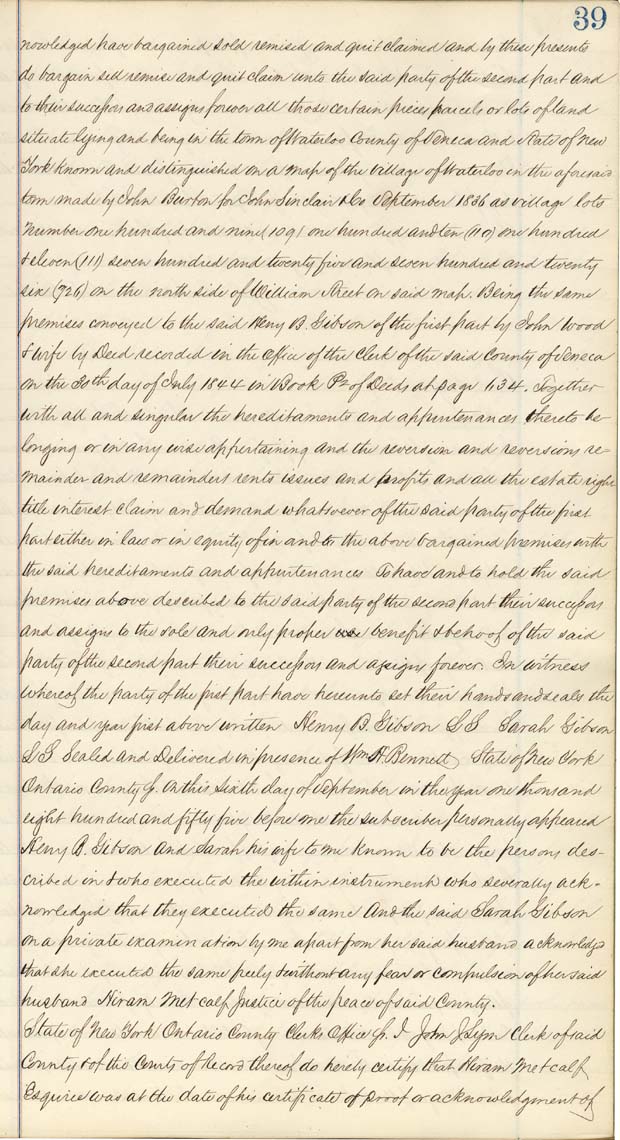 39
nowledged have bargained sold remised and quit claimed and by these presents
do bargain sell remise and quit claim unto the said party of the second part and
to their successors and assigns forever all those certain pieces parcels or lots of land
situate lying and being in the town of Waterloo County of Seneca and State of New
York known and distinguished on a map of the village of Waterloo in the aforesaid
town made by John Burton for John Sinclair & Co September 1836 as village lots
number one hundred and nine (109) one hundred and ten (110) one hundred
& eleven (111) seven hundred and twenty five and seven hundred and twenty
six (726) on the north side of William Street on said map. Being the same
premises conveyed to the said Henry B. Gibson of the first part by John Wood
& wife by Deed recorded in the Office of the Clerk of the said County of Seneca
on the 30th day of July 1844 in Book of Deeds at page 434. Together
with all and singular the hereditaments and appurtenances thereto be-
longing or in any wise appertaining and the reversion and reversions re-
mainder and remainders rents issues and profits and all the estate right
title interest claim and demand whatsoever of the said party of the first
part either in law or in equity of in and to the above bargained premises with
the said hereditaments and appurtenances To have and to hold the said
premises above described to the said party of the second part their successors
and assigns to the sole and only proper use benefit & behoof of the said
party of the second part their successors and assigns forever. In witness
whereof the party of the first part have hereunto set their hands and seals the
day and year first above written Henry B. Gibson LS Sarah Gibson
LS Sealed and Delivered in presence of Wm H. Bennett State of New York
Ontario County Ss. On this sixth day of September in the year one thousand
eight hundred and fifty five before me the subscriber personally appeared
Henry B. Gibson and Sarah his wife to me known to be the persons des-
cribed in & who executed the within instrument who severally ack-
nowledged that they executed the same And the said Sarah Gibson
on a private examination by me apart from her said husband acknowledged
that she executed the same freely & without any fear or compulsion of her said
husband Hiram Metcalf Justice of the peace of said County.
State of New York Ontario County Clerks Office Ss. I John J Lyon Clerk of said
County & of the Courts of Record thereof do hereby certify that Hiram Metcalf
Esquire was at the date of his certificate of proof or acknowledgment of